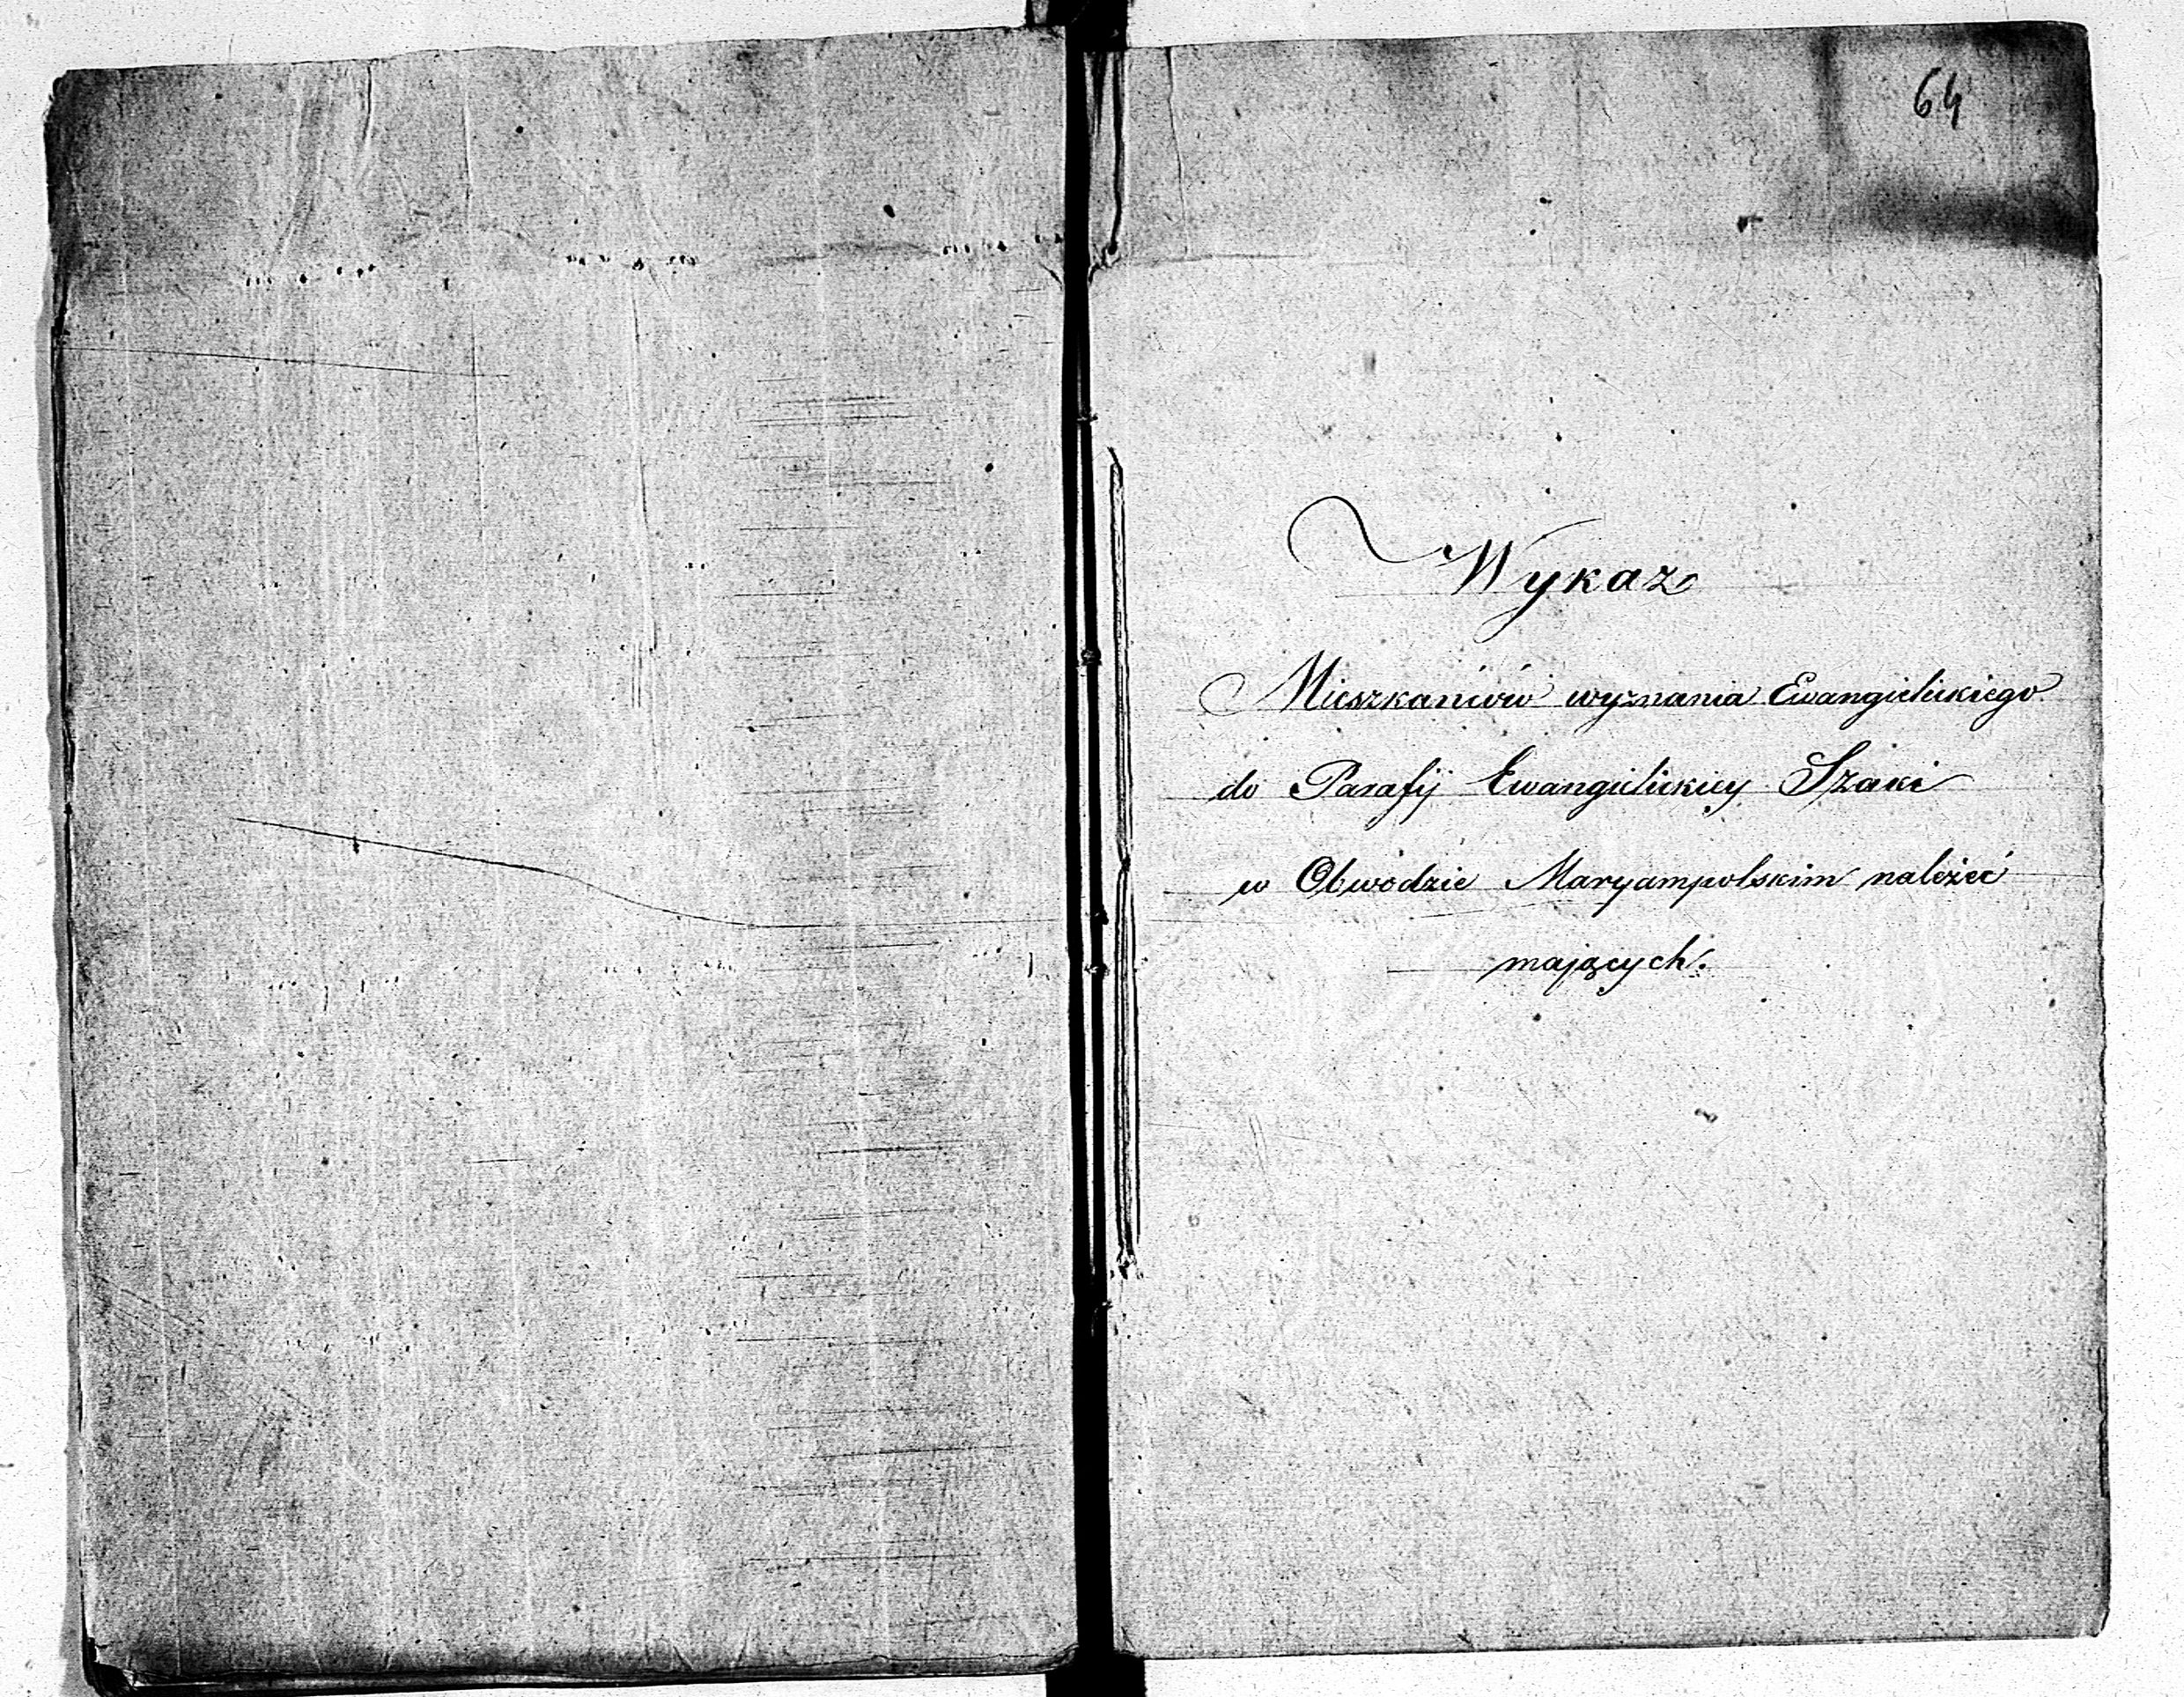 64
Wykaz
Mieszkańców wyznania Ewangielickiego
do Parafij Ewangielickiey Szaki
w Obwodzie Maryampolskim należeć
mających.